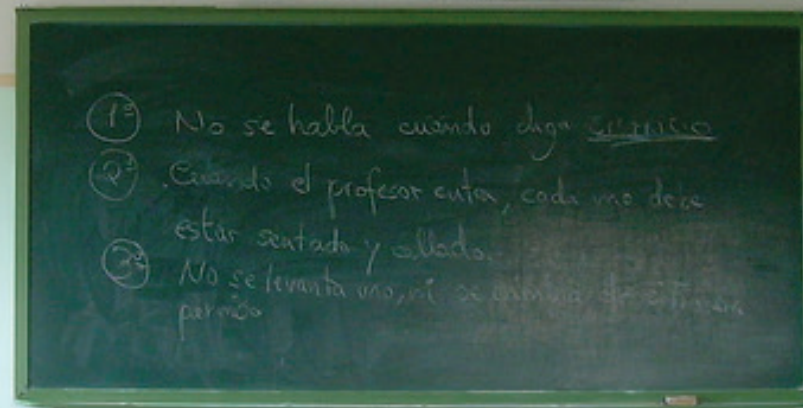 1º No se habla cuando diga silencio
2º Cuando el profesor entra, cada uno debe
estar sentado y callado.
3º No se levanta uno, ni se
permiso